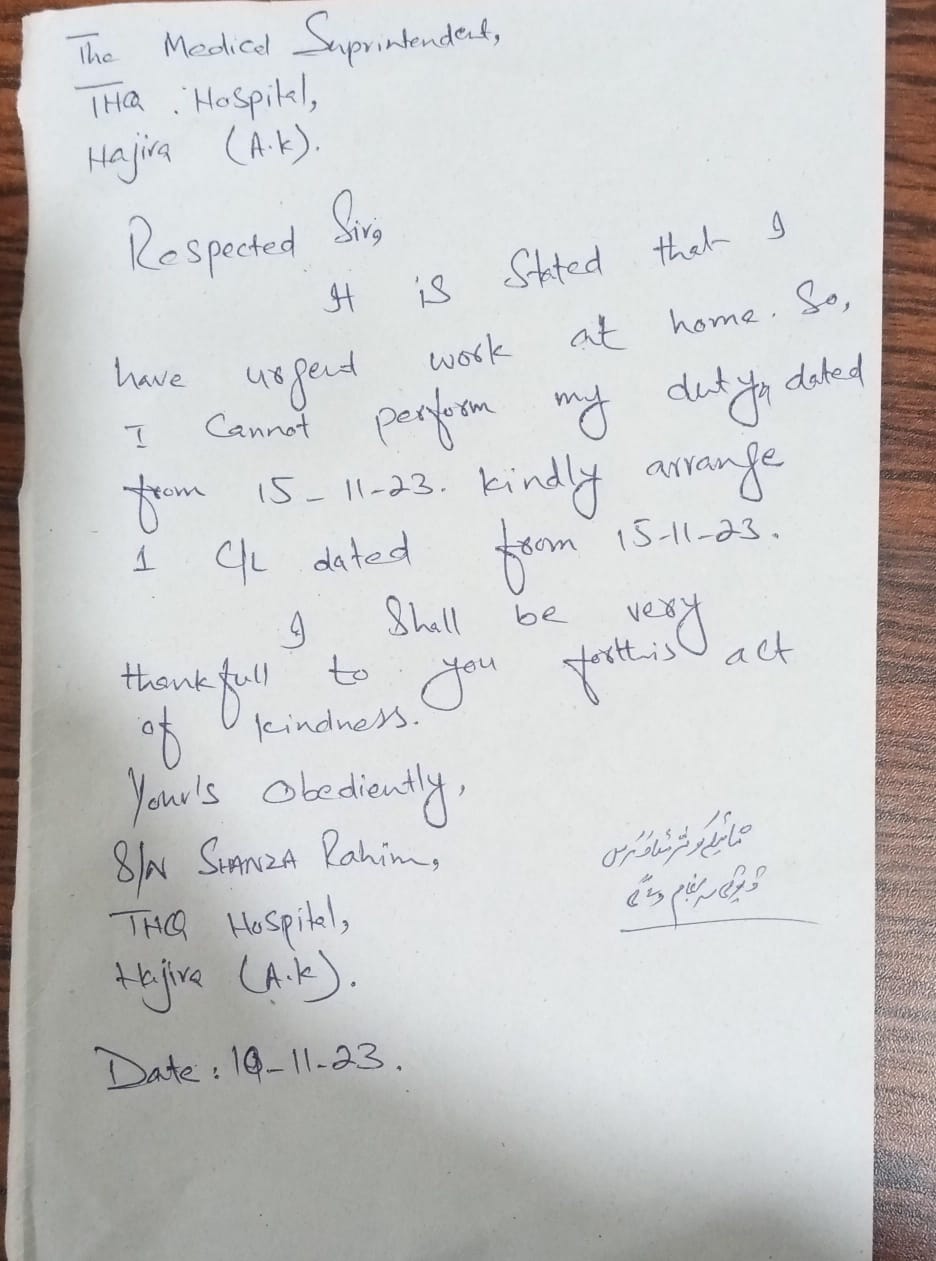 The Medical Suprintendent,
THQ . Hospital,
Hajira (A.k).
Respected Sir,
It is Stated that I
have urgent work at home. So,
I Cannot perform my duty, dated
from 15-11-23. kindly arrange
1 C/L dated from 15-11-23.
I Shall be very
thankfull to you forthis act
of kindness.
Your's Obediently,
S/N SHANZA Rahim,
THQ Hospital,
Hajira (A.k).
Date : 10-11-23.